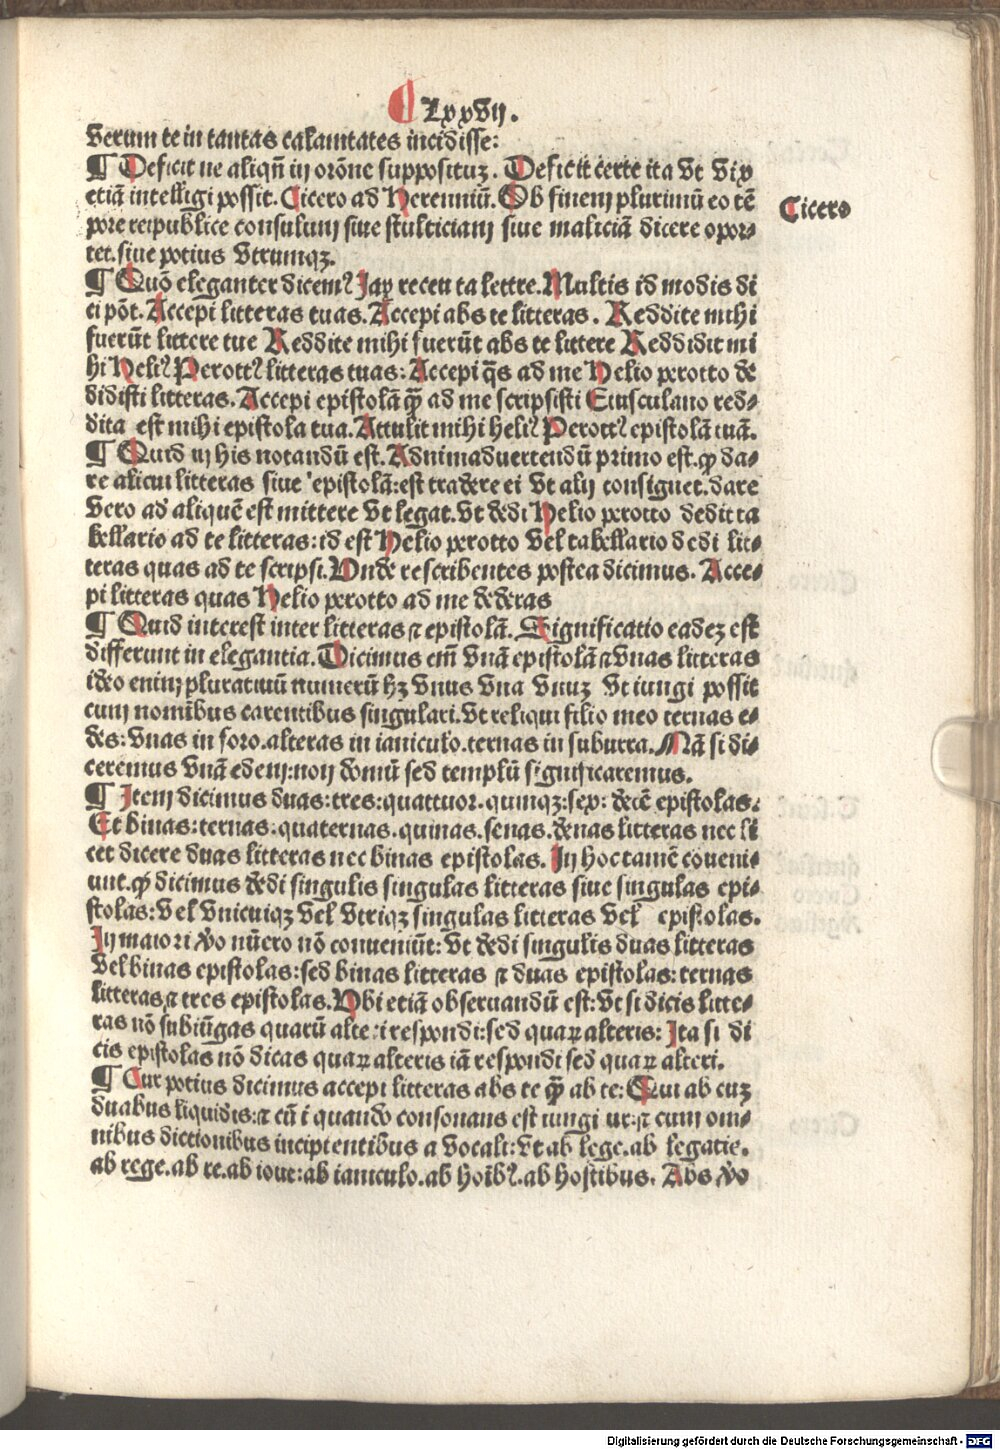 C LxxVij.
Verum te in tantas calamitates incidisse:
¶ Deficit ne aliqn̄ in orōne supposituꝫ. Deficit certe ita Vt Vix
etiā intelligi possit. Cicero ad Herenniū. Ob finem plurimū eo tē
Cicero
pore reipublice consulum siue stulticiam siue maliciā dicere opor⸗
tet. siue potius Vtrumqꝫ.
¶ Quō eleganter dicemꝰ Jaꝫ recen ta lettre. Multis id modis di
ci pōt. Accepi litteras tuas. Accepi abs te litteras. Reddite mihi
fuerūt littere tue Reddite mihi fuerūt abs te littere Reddidit mi
hi Heliꝰ Perottꝰ litteras tuas: Accepi q̄s ad me Helio perotto de
didisti litteras. Accepi epistolā quā ad me scripsisti Eiusculano red⸗
dita est mihi epistola tua. Attulit mihi heliꝰ Perottꝰ epistolā tuā.
¶ Quid in his notandū est. Adnimaduertendū primo est. ꝙ da⸗
re alicui litteras siue epistolā: est tradere ei Vt alij consignet. dare
Vero ad aliquē est mittere Vt legat. Vt dedi Helio perotto dedit ta
bellario ad te litteras: id est Helio perotto Vel tabellario dedi lit⸗
teras quas ad te scripsi. Vnde rescribentes postea dicimus. Acce⸗
pi litteras quas Helio perotto ad me dederas
¶ Quid interest inter litteras ⁊ epistolā. Significatio eadeꝫ est
differunt in elegantia. Dicimus em̄ Vnā epistolā ⁊ Vnas litteras
ideo enim pluratiuū numerū hꝫ Vnus Vna Vnuꝫ Vt iungi possit
cum nominibus carentibus singulari. Vt reliqui filio meo ternas e⸗
des: Vnas in foro. alteras in ianiculo. ternas in suburra. Nā si di⸗
ceremus Vnā edem: non domū sed templū significaremus.
¶ Item dicimus duas: tres: quattuor. quinqꝫ: sex: decē epistolas.
Et binas: ternas. quaternas. quinas. senas. denas litteras nec li
cet dicere duas litteras nec binas epistolas. In hoc tamē coueni⸗
unt. ꝙ dicimus dedi singulis singulas litteras siue singulas epi⸗
stolas: Vel Vnicuiqꝫ Vel Vtriqꝫ singulas litteras Vel epistolas.
In maiori v̄o nūero nō conueniūt: Vt dedi singulis duas litteras
Vel binas epistolas: sed binas litteras ⁊ duas epistolas: ternas
litteras ⁊ tres epistolas. Vbi etiā obseruandū est: Vt si dicis litte⸗
ras nō subiūgas quarū alteri respondi: sed quaꝝ alteris: Ita si di
cis epistolas nō dicas quaꝝ alteris iā respondi sed quaꝝ alteri.
¶ Cur potius dicimus accepi litteras abs te quā ab te: Qui ab cuꝫ
duabus liquidis: ⁊ cū i quando consonans est iungi ur: ⁊ cum om⸗
nibus dictionibus incipientibus a Vocali: Vt ab lege. ab legatie.
ab rege. ab re. ab ioue: ab ianiculo. ab hoībꝰ. ab hostibus. Abs v̄o
Digitalisierung gefördert durch die Deutsche Forschungsgemeinschaft - DFG